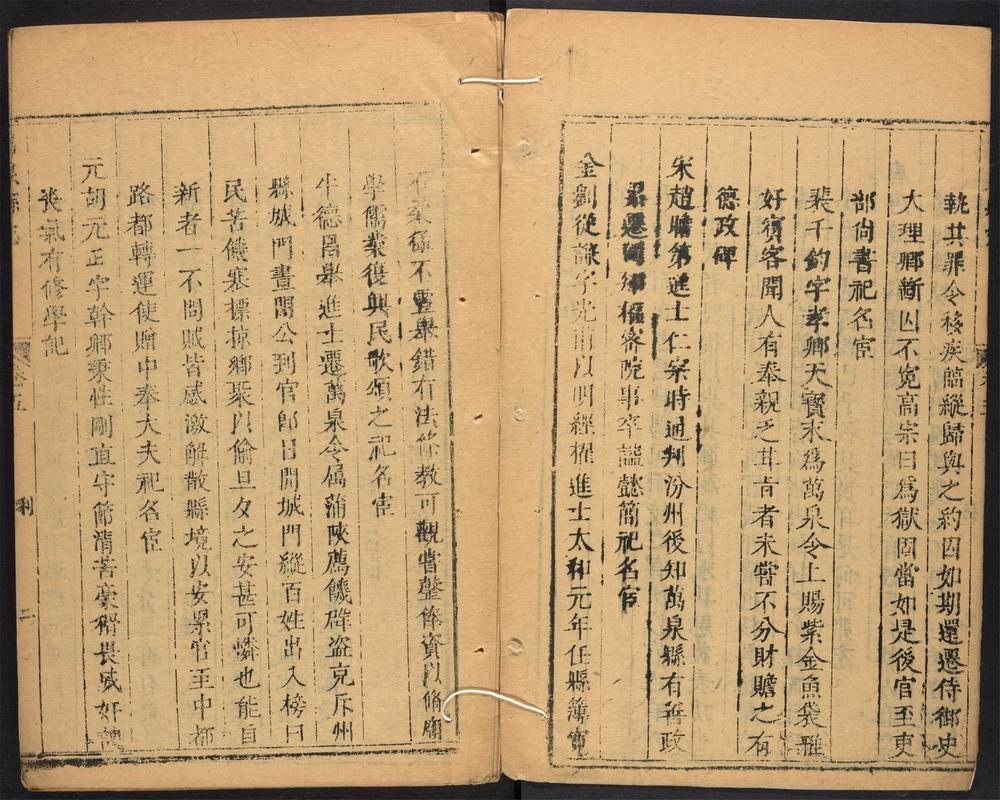 執其罪令移疾臨縱歸與之約囚如期還遷侍御史
大理卿斷囚不寃高宗曰為獄固當如是後官至吏
部尚書祀名宦
裴千鈞字孝卿天寶末為萬泉令上賜紫金魚袋雅
好賓客聞人有奉親乏甘旨者未嘗不分財贍之有
德政碑
宋趙瞻第進士仁宗時通判汾州後知萬泉縣有善政
遷同知樞密院事卒謚懿簡祀名宦
金劉從謙字光甫以明經擢進士太和元年任縣簿寬
不柔猛不舉錯有法條教可觀嘗罄俸資以脩廟
學儒業復興民歌頌之祀名宦
牛德昌舉進士遷萬泉令屬蒲陝薦饑群盗充斥州
縣城門晝閉公到官即日開城門縱百姓出入榜曰
民苦饑寒摽掠鄉聚以偷旦夕之安甚可憐也能自
新者一不問賊皆感激解散縣境以安累官至中都
路都轉運使贈中奉大夫祀名宦
元胡元正字幹卿秉性剛直守節清苦豪猾畏威奸
喪氣有修學記
卷五
二
利